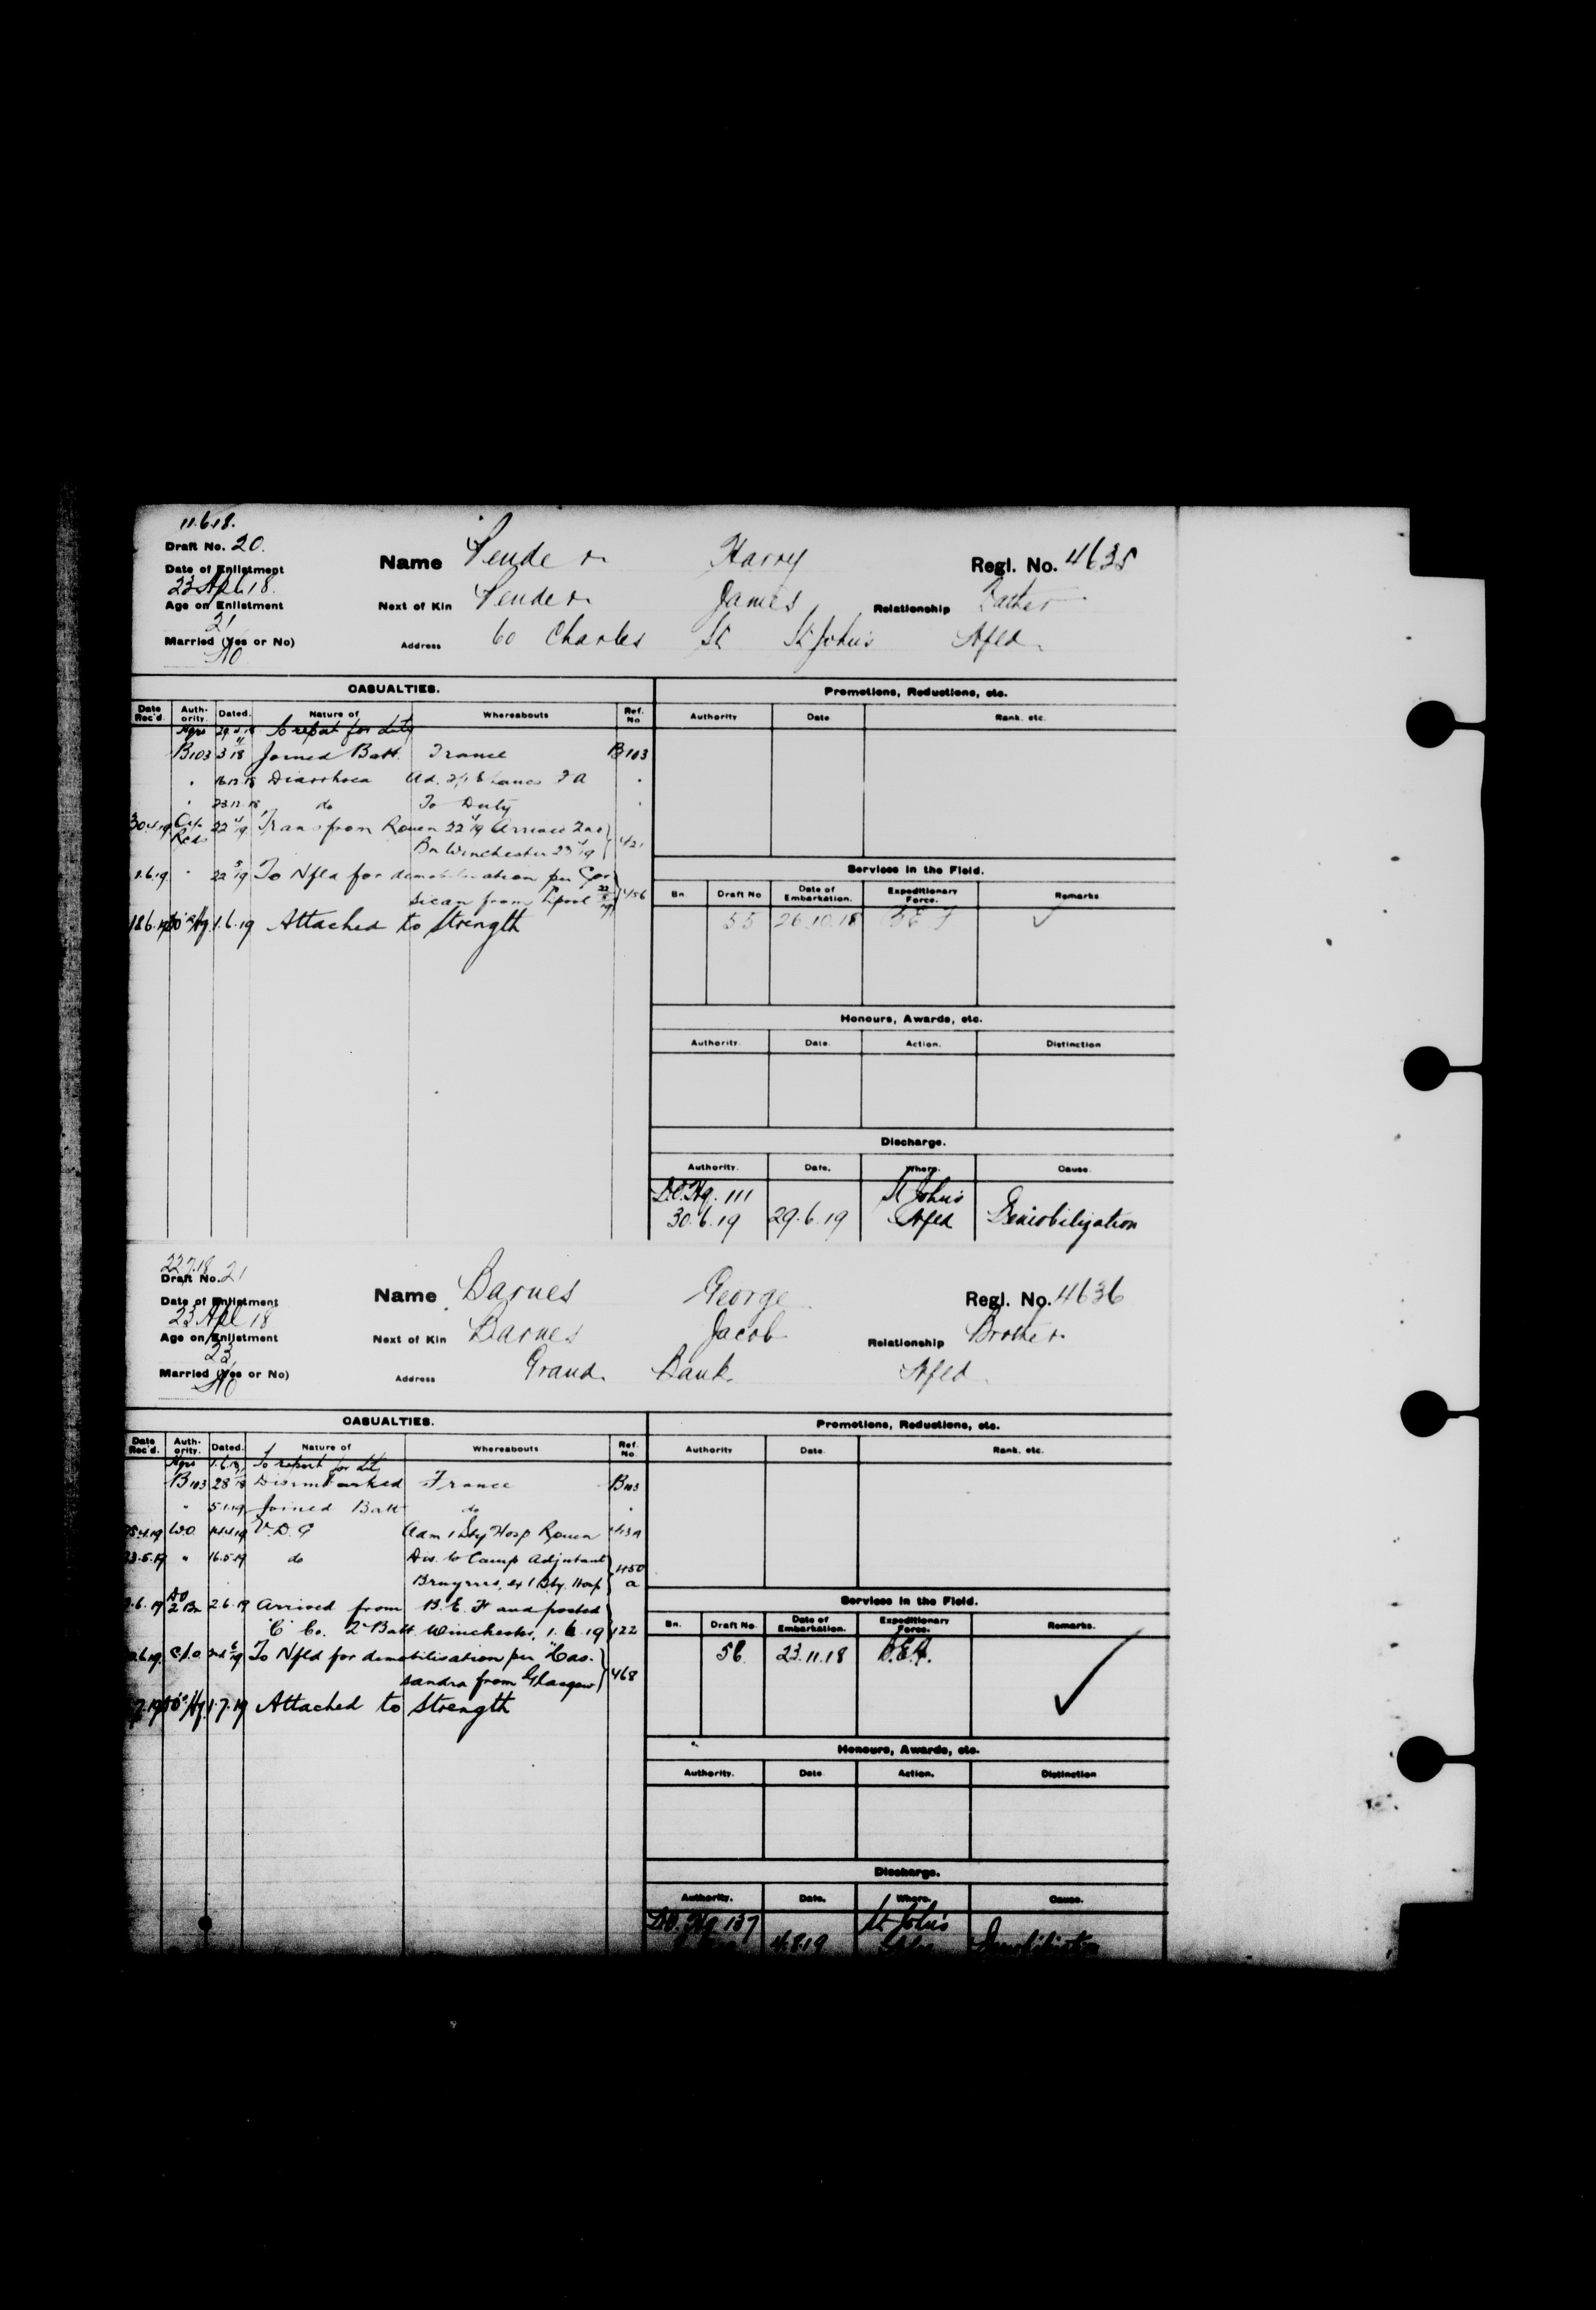 11.6.18.
Draft No. 20.
Date of Enlistment
23 Apl. 18.
Age on Enlistment
21
Married (Yes or No)
No
Name Pender Harry Regl. No. 4635
Next of Kin Pender James Relationship Father
Address 60 Charles St St John's Nfld.
CASUALTIES.
Date Rec'd. Authority. Dated. Nature of Whereabouts Ref. No
Hqrs 29.5.18 To report for duty
B103 3 11/18 Joined Batt. France B103
" 16.12.18 Diarrhoea Ad. 2/1 E Lancs F A "
" 23.12.18 do To Duty "
30.4.19 Recds 22 4/19 Trans from Rouen 22 4/19 Arrived 2nd
Bn Winchester 23 4/19 421
1.6.19 " 22 5/19 To Nfld for demobilisation per Cor
sican from L'pool 22/5/19 456
18.6.19 Hq 1.6.19 Attached to Strength
Promotions, Reductions, etc.
Authority Date Rank. etc.
Services in the Field.
Bn. Draft No Date of Embarkation. Expeditionary Force. Remarks
55 26.10.18 B E F ✓
Honours, Awards, etc.
Authority. Date. Action. Distinction
Discharge.
Authority. Date. Where. Cause.
D.O. Hq. 111 St John's
30.6.19 29.6.19 Nfld Demobilization
22.7.18
Draft No. 21
Date of Enlistment
23 Apl 18
Age on Enlistment
23
Married (Yes or No)
No
Name Barnes George Regl. No. 4636
Next of Kin Barnes Jacob Relationship Brother
Address Grand Bank Nfld
CASUALTIES.
Date Rec'd. Authority. Dated. Nature of Whereabouts Ref. No.
Hqrs 1.6.18 To report for dut
B103 28 11/18 Disembarked France B103
" 5.1.19 Joined Batt do "
W.O. 14.4.19 V.D.G Adm 1 Sty Hosp Rouen 434
23.5.19 " 16.5.19 do Dis. to Camp Adjutant
Bruyeres, ex 1 Sty. Hosp 450 a
2 Bn 2.6.19 Arrived from B.E.F and posted
"C" Co. 2nd Batt. Winchester, 1.6.19 122
To Nfld for demobilisation per "Cas-
sandra from Glasgow 468
Hq 1.7.19 Attached to Strength
Promotions, Reductions, etc.
Authority Date. Rank. etc.
Services in the Field.
Bn. Draft No. Date of Embarkation. Expeditionary Force. Remarks.
56 23.11.18 B.E.F. ✓
Honours, Awards, etc.
Authority. Date. Action. Distinction
Discharge.
Authority. Date. Where. Cause.
D.O. Hq 137 St John's
4.8.19 Demobilization